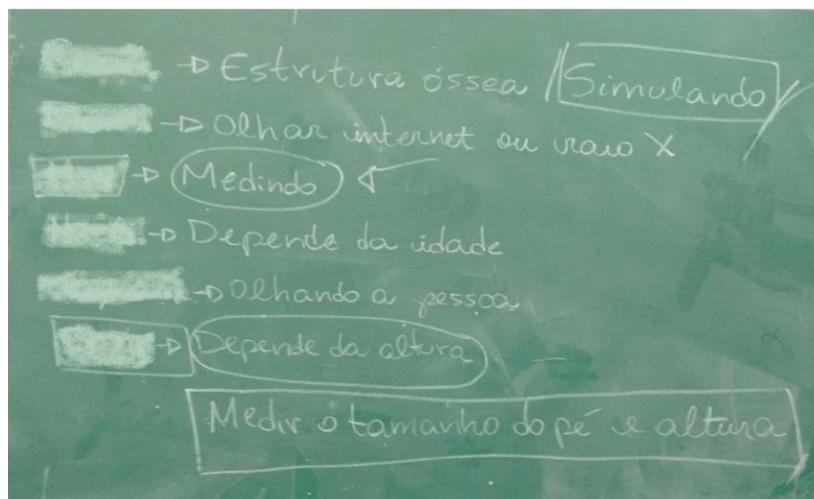 → Estrutura óssea / Simulando
→ Olhar internet ou raio X
→ Medindo
→ Depende da idade
→ Olhando a pessoa
→ Depende da altura
Medir o tamanho do pé e altura